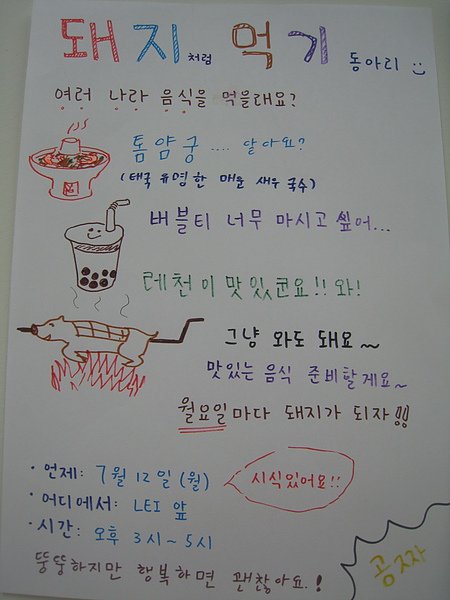 돼지처럼 먹기 동아리
여러 나라 음식을 먹을래요?
톰얌궁.... 알아요?
(태국 유명한 매운 새우 국수)
버블티 너무 마시고 싶어...
레천이 맛있군요!! 와!
그냥 와도 돼요~
맛있는 음식 준비할게요~
월요일마다 돼지가 되자!!
· 언제: 7월 12일 (월)
시식있어요!!
· 어디에서: LEI 앞
· 시간: 오후 3시~5시
뚱뚱하지만 행복하면 괜찮아요.!
공짜